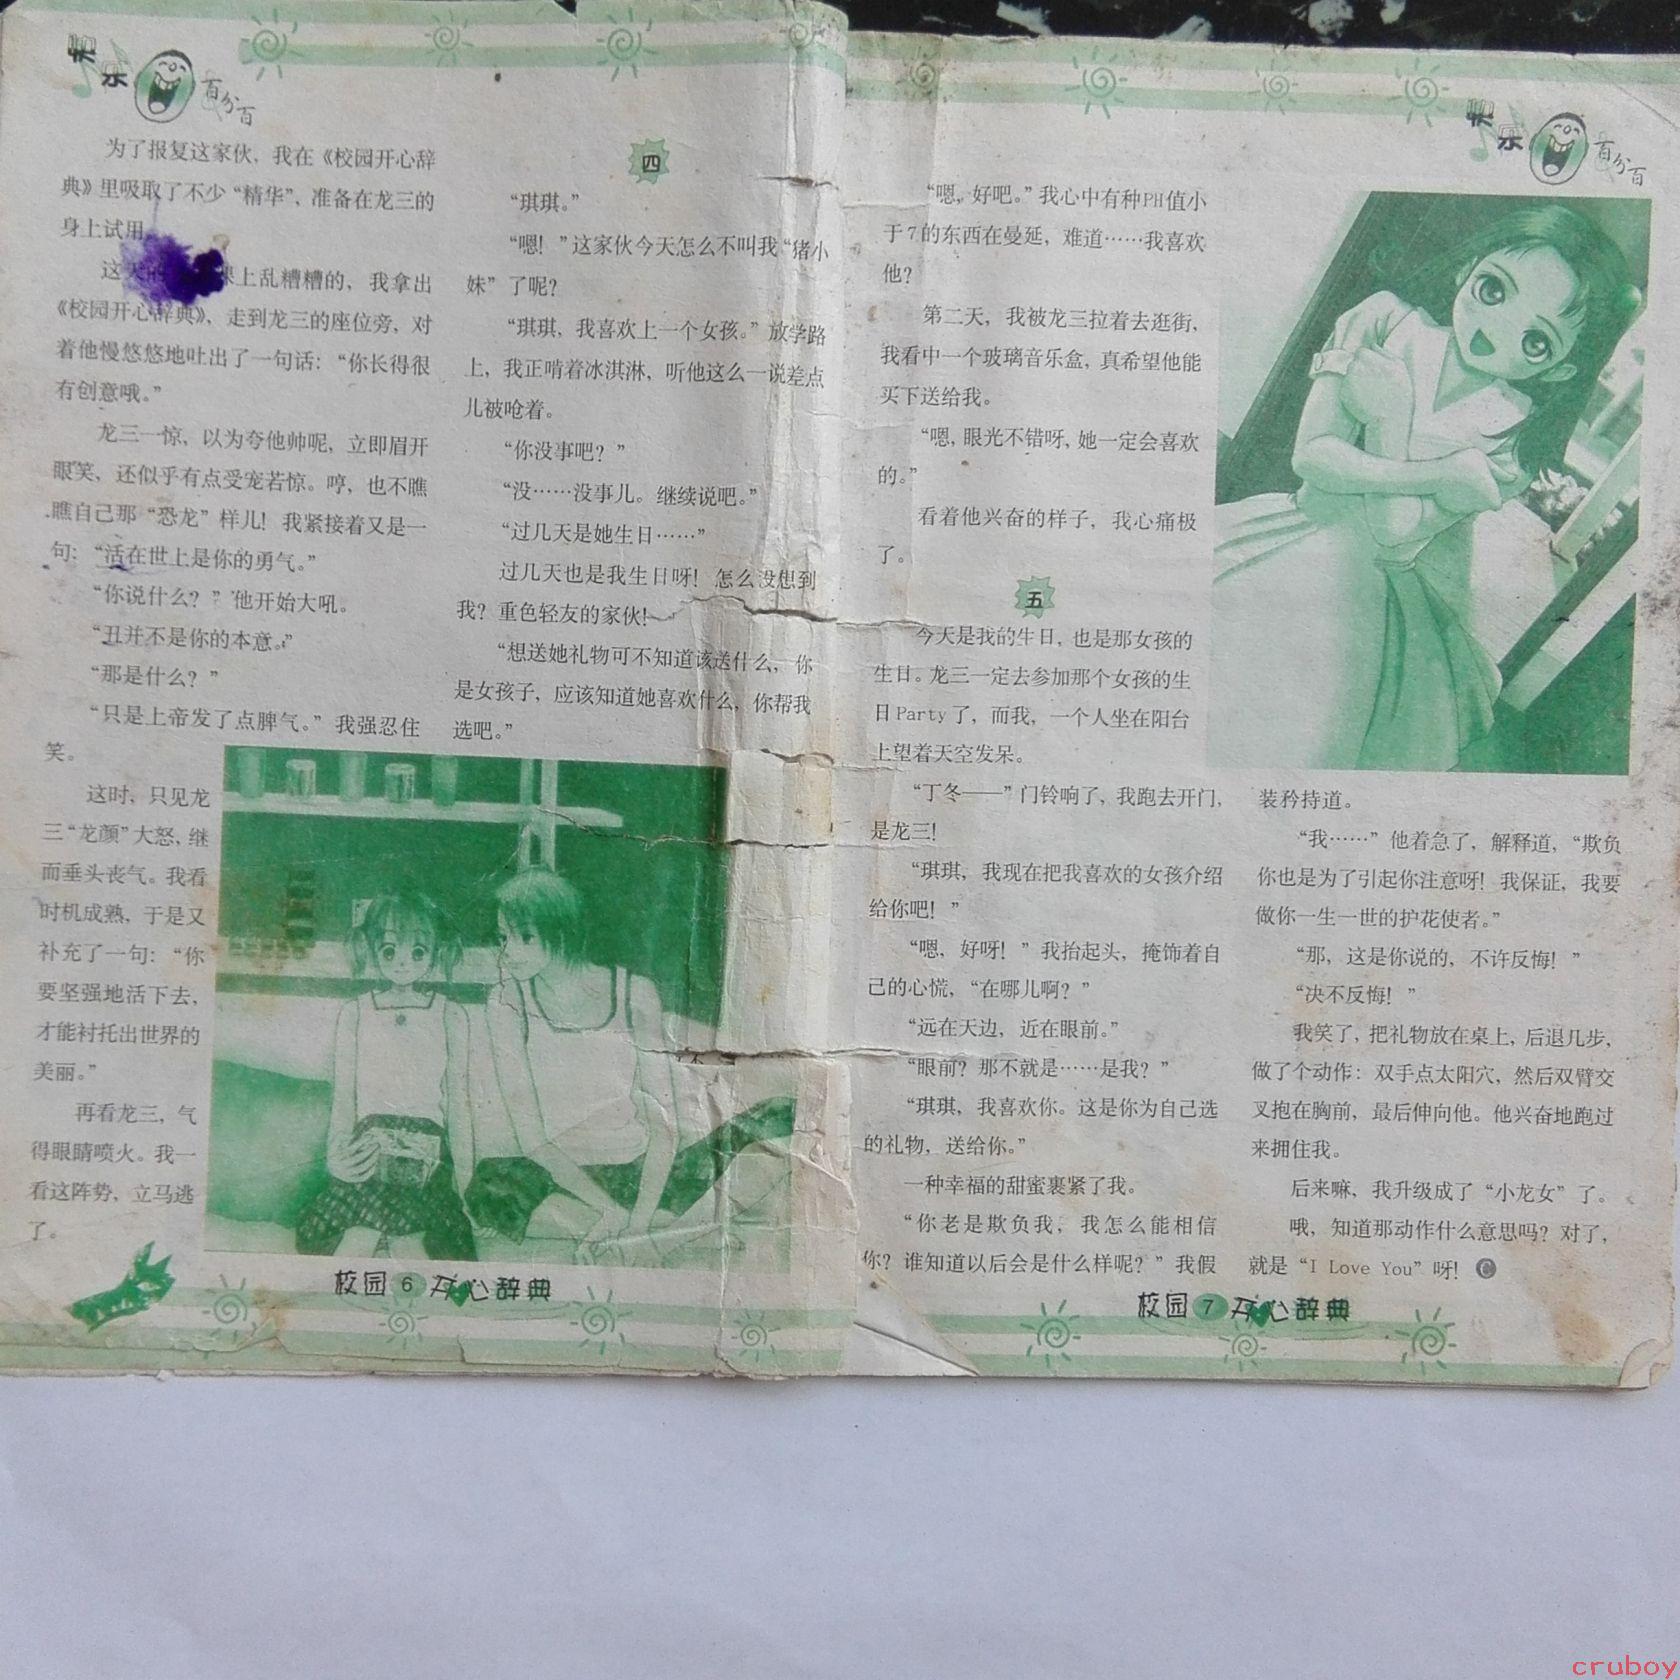 开
乐
百分百
为了报复这家伙，我在《校园开心辞
典》里吸取了不少“精华”，准备在龙三的
身上试用。
这天的 课上乱糟糟的，我拿出
《校园开心辞典》，走到龙三的座位旁，对
着他慢悠悠地吐出了一句话：“你长得很
有创意哦。”
龙三一惊，以为夸他帅呢，立即眉开
眼笑，还似乎有点受宠若惊。哼，也不瞧
瞧自己那“恐龙”样儿！我紧接着又是一
句：“活在世上是你的勇气。”
“你说什么？”他开始大吼。
“丑并不是你的本意。”
“那是什么？”
“只是上帝发了点脾气。”我强忍住
笑。
这时，只见龙
三“龙颜”大怒，继
而垂头丧气。我看
时机成熟，于是又
补充了一句：“你
要坚强地活下去，
才能衬托出世界的
美丽。”
再看龙三，气
得眼睛喷火。我一
看这阵势，立马逃
了。
四
“琪琪。”
“嗯！”这家伙今天怎么不叫我“猪小
妹”了呢？
“琪琪，我喜欢上一个女孩。”放学路
上，我正啃着冰淇淋，听他这么一说差点
儿被呛着。
“你没事吧？”
“没……没事儿。继续说吧。”
“过几天是她生日……”
过几天也是我生日呀！怎么没想到
我？重色轻友的家伙！
“想送她礼物可不知道该送什么，你
是女孩子，应该知道她喜欢什么，你帮我
选吧。”
校园 6 开心辞典
乐
百分百
“嗯，好吧。”我心中有种PH值小
于7的东西在蔓延，难道……我喜欢
他？
第二天，我被龙三拉着去逛街，
我看中一个玻璃音乐盒，真希望他能
买下送给我。
“嗯，眼光不错呀，她一定会喜欢
的。”
看着他兴奋的样子，我心痛极
了。
五
今天是我的生日，也是那女孩的
生日。龙三一定去参加那个女孩的生
日Party了，而我，一个人坐在阳台
上望着天空发呆。
“丁冬——”门铃响了，我跑去开门，
是龙三！
“琪琪，我现在把我喜欢的女孩介绍
给你吧！”
“嗯，好呀！”我抬起头，掩饰着自
己的心慌，“在哪儿啊？”
“远在天边，近在眼前。”
“眼前？那不就是……是我？”
“琪琪，我喜欢你。这是你为自己选
的礼物，送给你。”
一种幸福的甜蜜裹紧了我。
“你老是欺负我，我怎么能相信
你？谁知道以后会是什么样呢？”我假
装矜持道。
“我……”他着急了，解释道，“欺负
你也是为了引起你注意呀！我保证，我要
做你一生一世的护花使者。”
“那，这是你说的，不许反悔！”
“决不反悔！”
我笑了，把礼物放在桌上，后退几步，
做了个动作：双手点太阳穴，然后双臂交
叉抱在胸前，最后伸向他。他兴奋地跑过
来拥住我。
后来嘛，我升级成了“小龙女”了。
哦，知道那动作什么意思吗？对了，
就是“I Love You”呀！
校园 7 开心辞典
cruboy